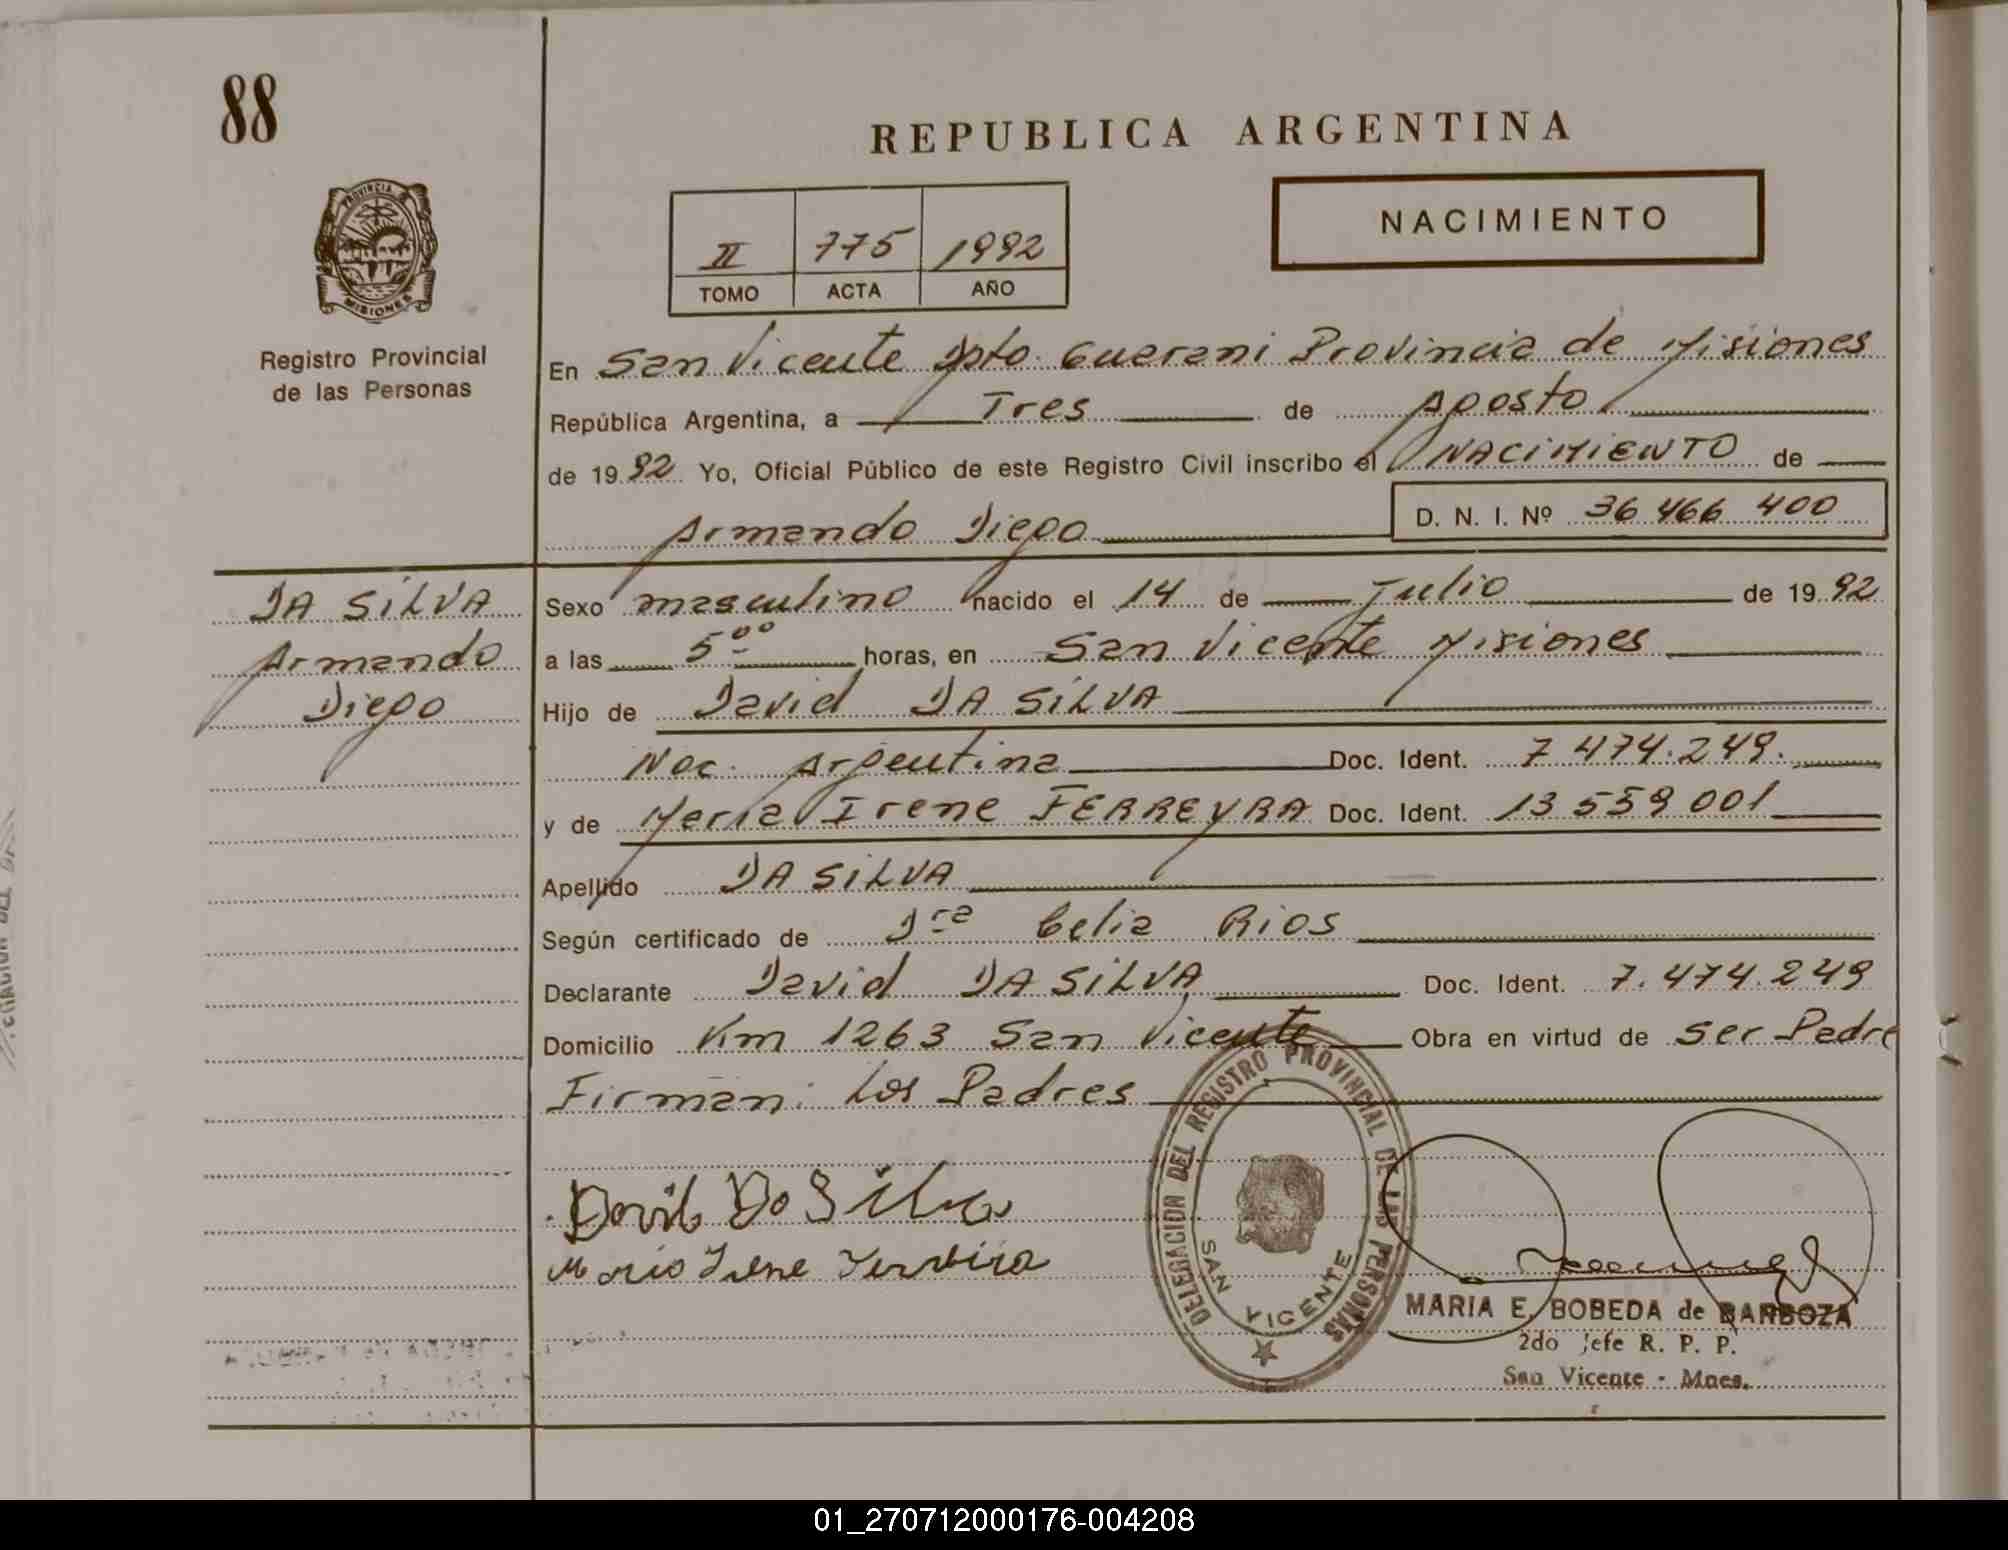 88
REPUBLICA ARGENTINA
PROVINCIA DE
MISIONES
Registro Provincial
de las Personas
II 775 1992
TOMO ACTA AÑO
NACIMIENTO
En San Vicente Dpto. Guarani Provincia de Misiones
República Argentina, a Tres de Agosto
de 1992 Yo, Oficial Público de este Registro Civil inscribo el NACIMIENTO de
Armando Diego D. N. I. Nº 36 466 400
DA SILVA
Armando
Diego
Sexo masculino nacido el 14 de Julio de 1992
a las 5ºº horas, en San Vicente Misiones
Hijo de David DA SILVA
Nac. Argentina Doc. Ident. 7 474.249.
y de Maria Irene FERREYRA Doc. Ident. 13 559 001
Apellido DA SILVA
Según certificado de Dra Celia Rios
Declarante David DA SILVA Doc. Ident. 7.474.249
Domicilio Km 1263 San Vicente Obra en virtud de ser Padre
Firman: Los Padres
David Da Silva
Maria Irene Ferreira
DELEGACION DEL REGISTRO PROVINCIAL DE LAS PERSONAS
SAN VICENTE
MARIA E. BOBEDA de BARBOZA
2do Jefe R. P. P.
San Vicente - Mnes.
01_270712000176-004208